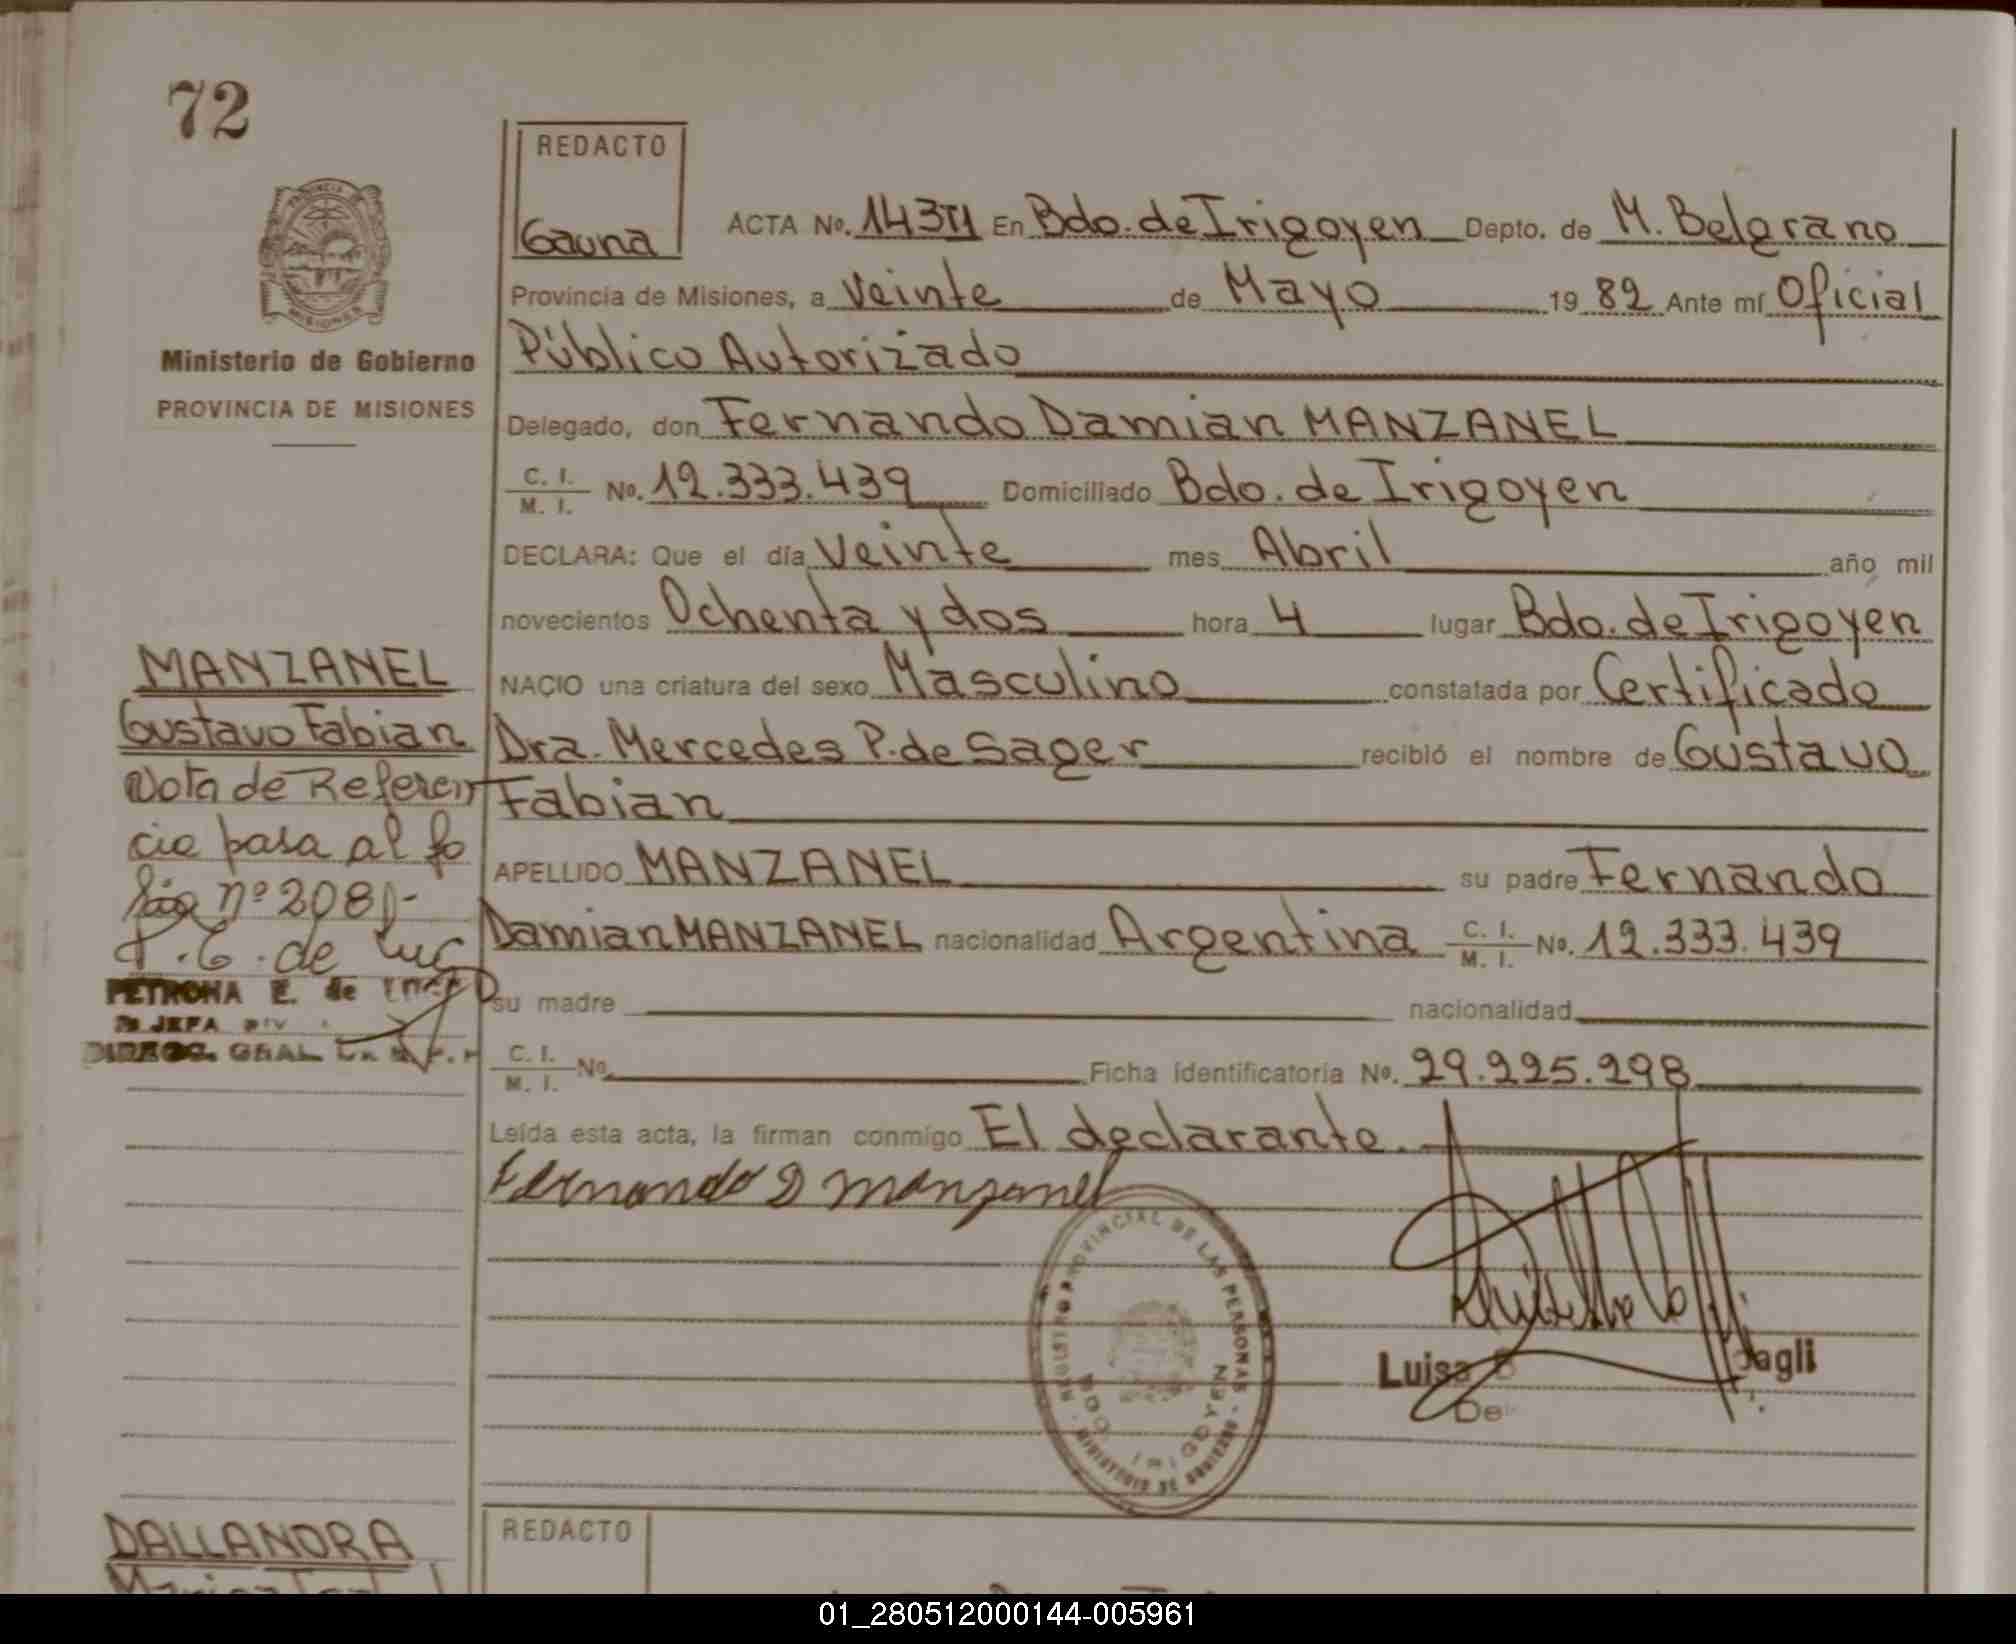 72
REDACTO
Gauna
ACTA No. 143TI En Bdo. de Irigoyen Depto. de M. Belgrano
Provincia de Misiones, a Veinte de Mayo 1982 Ante mí Oficial
Público Autorizado
Delegado, don Fernando Damian MANZANEL
C. I. / M. I. No. 12.333.439 Domiciliado Bdo. de Irigoyen
DECLARA: Que el día Veinte mes Abril año mil
novecientos Ochenta y dos hora 4 lugar Bdo. de Irigoyen
NACIO una criatura del sexo Masculino constatada por Certificado
Dra. Mercedes P. de Sager recibió el nombre de Gustavo
Fabian
APELLIDO MANZANEL su padre Fernando
Damian MANZANEL nacionalidad Argentina C. I. / M. I. No. 12.333.439
su madre nacionalidad
C. I. / M. I. No. Ficha identificatoria No. 29.225.298
Leída esta acta, la firman conmigo El declarante.
Fernando D Manzanel
REGISTRO PROVINCIAL DE LAS PERSONAS
MINISTERIO DE GOBIERNO
BDO. IRIGOYEN
Luisa
Ministerio de Gobierno
PROVINCIA DE MISIONES
MANZANEL
Gustavo Fabian
Nota de Referen
cia pasa al fo
nº 208
P. E. de Luc
PETRONA E. de
JEFA DIV
DIRECC. GRAL.
DALLANORA
REDACTO
01_280512000144-005961